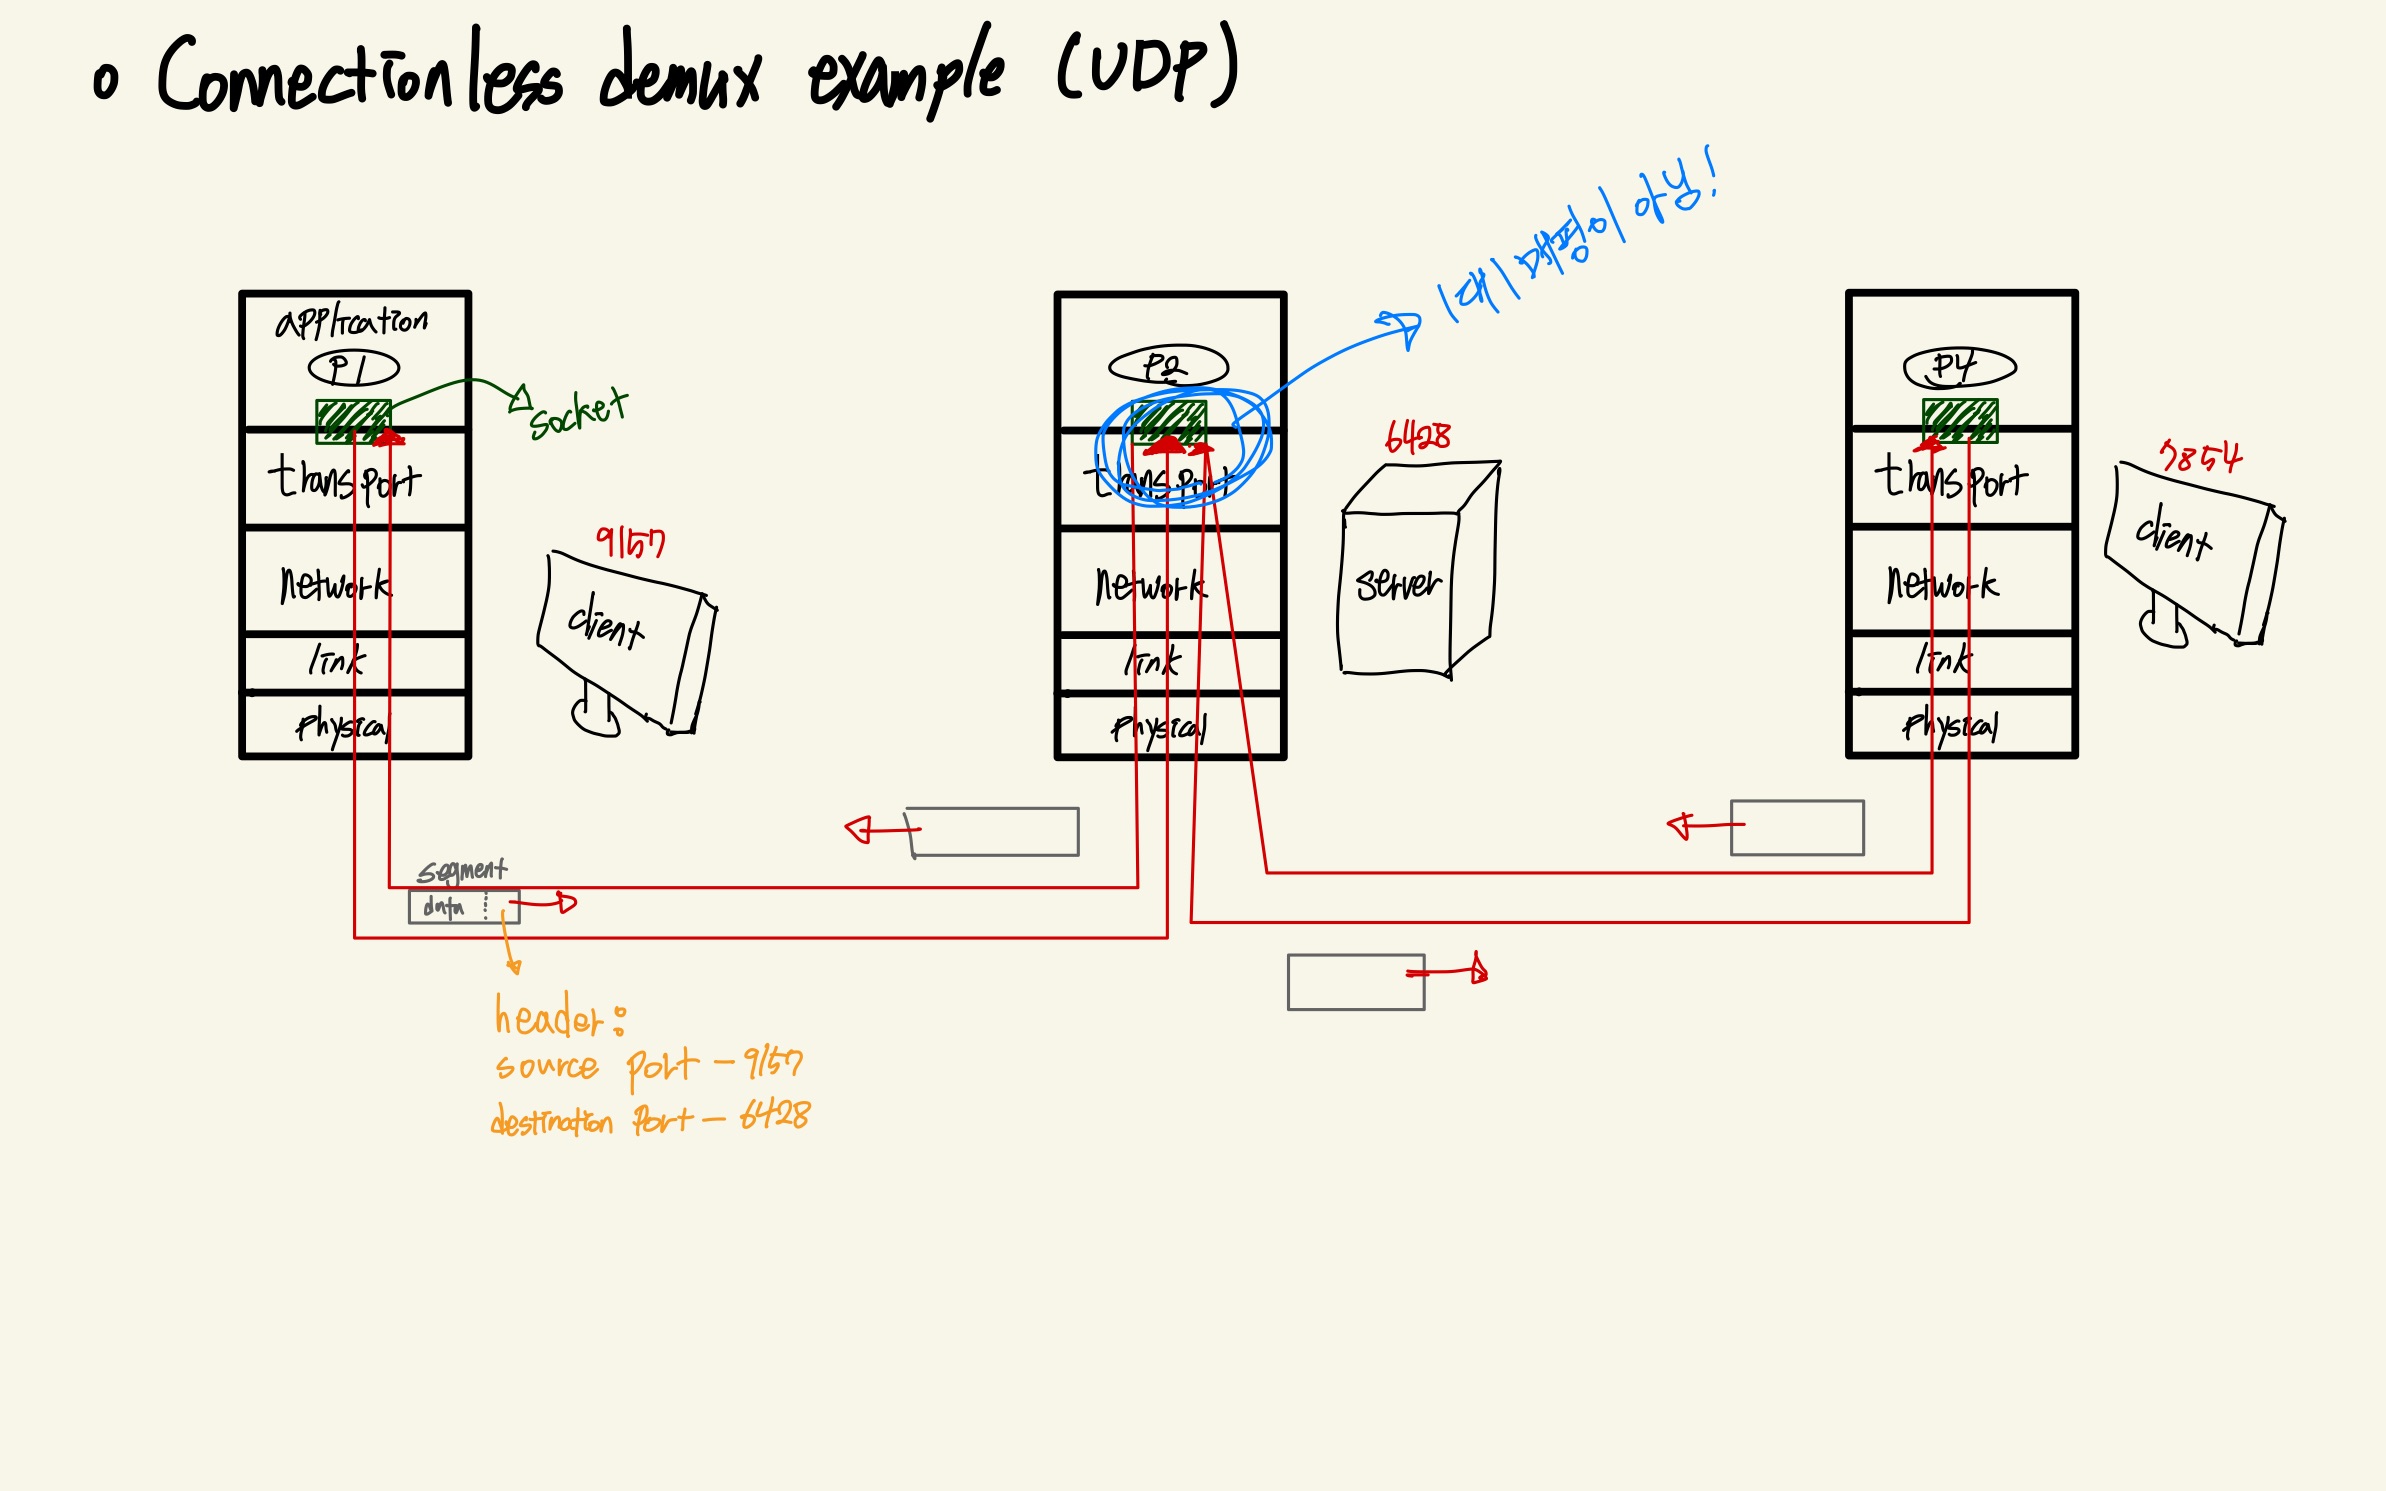 o Connectionless demux example (UDP)
1대1 매핑이 아님!
application
P1
socket
transport
network
link
physical
9157
client
P2
transport
network
link
physical
6428
server
P4
transport
network
link
physical
7854
client
segment
data
header:
source port - 9157
destination port - 6428